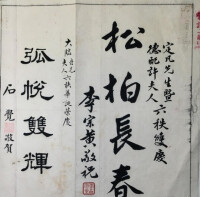 定凡先生暨
德配許夫人六秩雙慶
松柏長春
李宗黃敬祝
夫人六秩華誕榮慶
弧悅雙輝
石覺敬賀